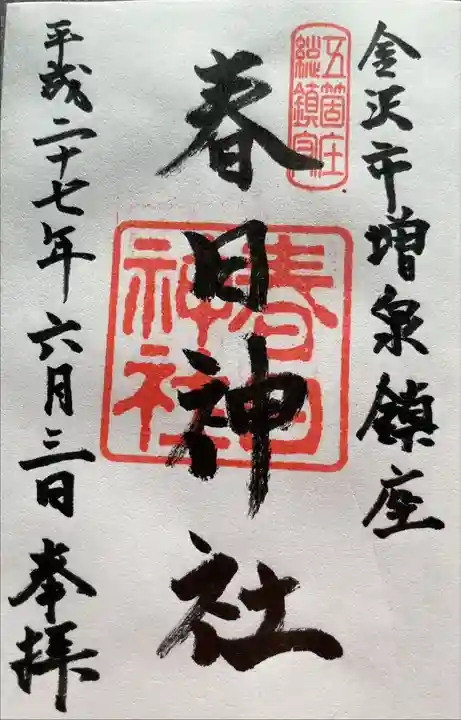 金沢市増泉鎮座
五箇庄
総鎮守
春日神社
春日
神社
平成二十七年六月三日 奉拝